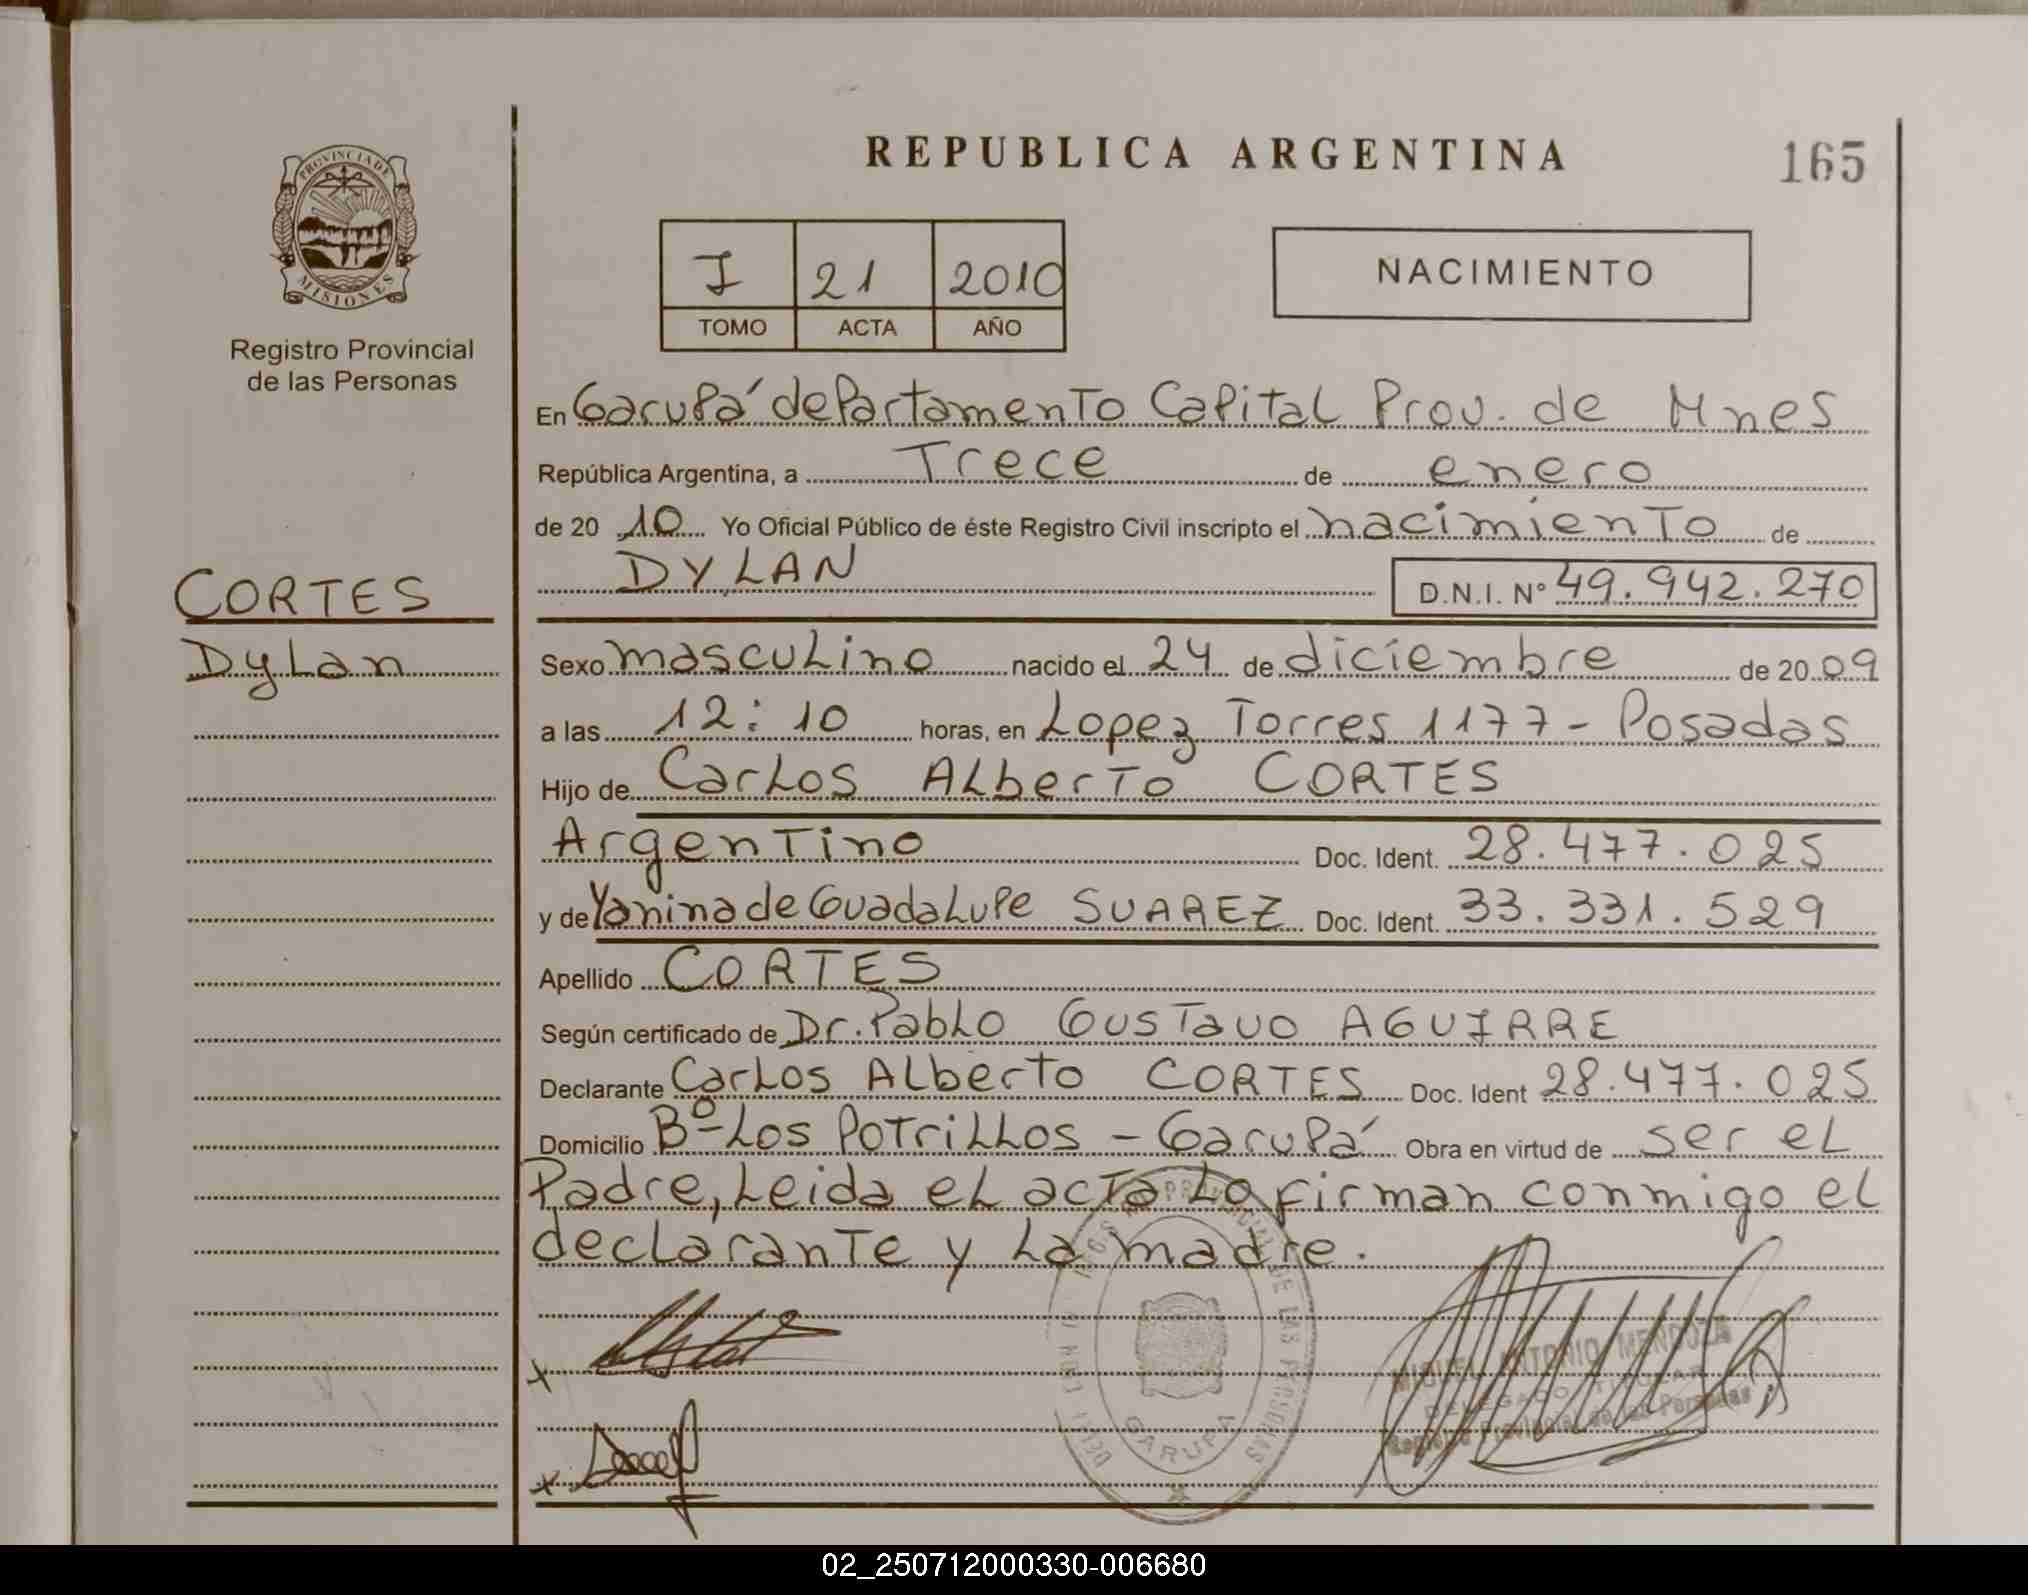 REPUBLICA ARGENTINA
165
PROVINCIA DE
MISIONES
Registro Provincial
de las Personas
I 21 2010
TOMO ACTA AÑO
NACIMIENTO
En Garupá departamento Capital Prov. de Mnes
República Argentina, a Trece de enero
de 20 10 Yo Oficial Público de éste Registro Civil inscripto el nacimiento de
DYLAN D.N.I. Nº 49.942.270
CORTES
Dylan
Sexo masculino nacido el 24 de diciembre de 20 09
a las 12:10 horas, en Lopez Torres 1177 - Posadas
Hijo de Carlos Alberto CORTES
Argentino Doc. Ident. 28.477.025
y de Yanina de Guadalupe SUAREZ Doc. Ident. 33.331.529
Apellido CORTES
Según certificado de Dr. Pablo Gustavo AGUIRRE
Declarante Carlos Alberto CORTES Doc. Ident 28.477.025
Domicilio Bº Los Potrillos - Garupá Obra en virtud de ser el
Padre, Leida el acta Lo firman conmigo el
declarante y La madre.
PROVINCIAL DE LAS PERSONAS
GARUPA
MIGUEL ANTONIO MENDOZA
DELEGADO TITULAR
Registro Provincial de las Personas
02_250712000330-006680